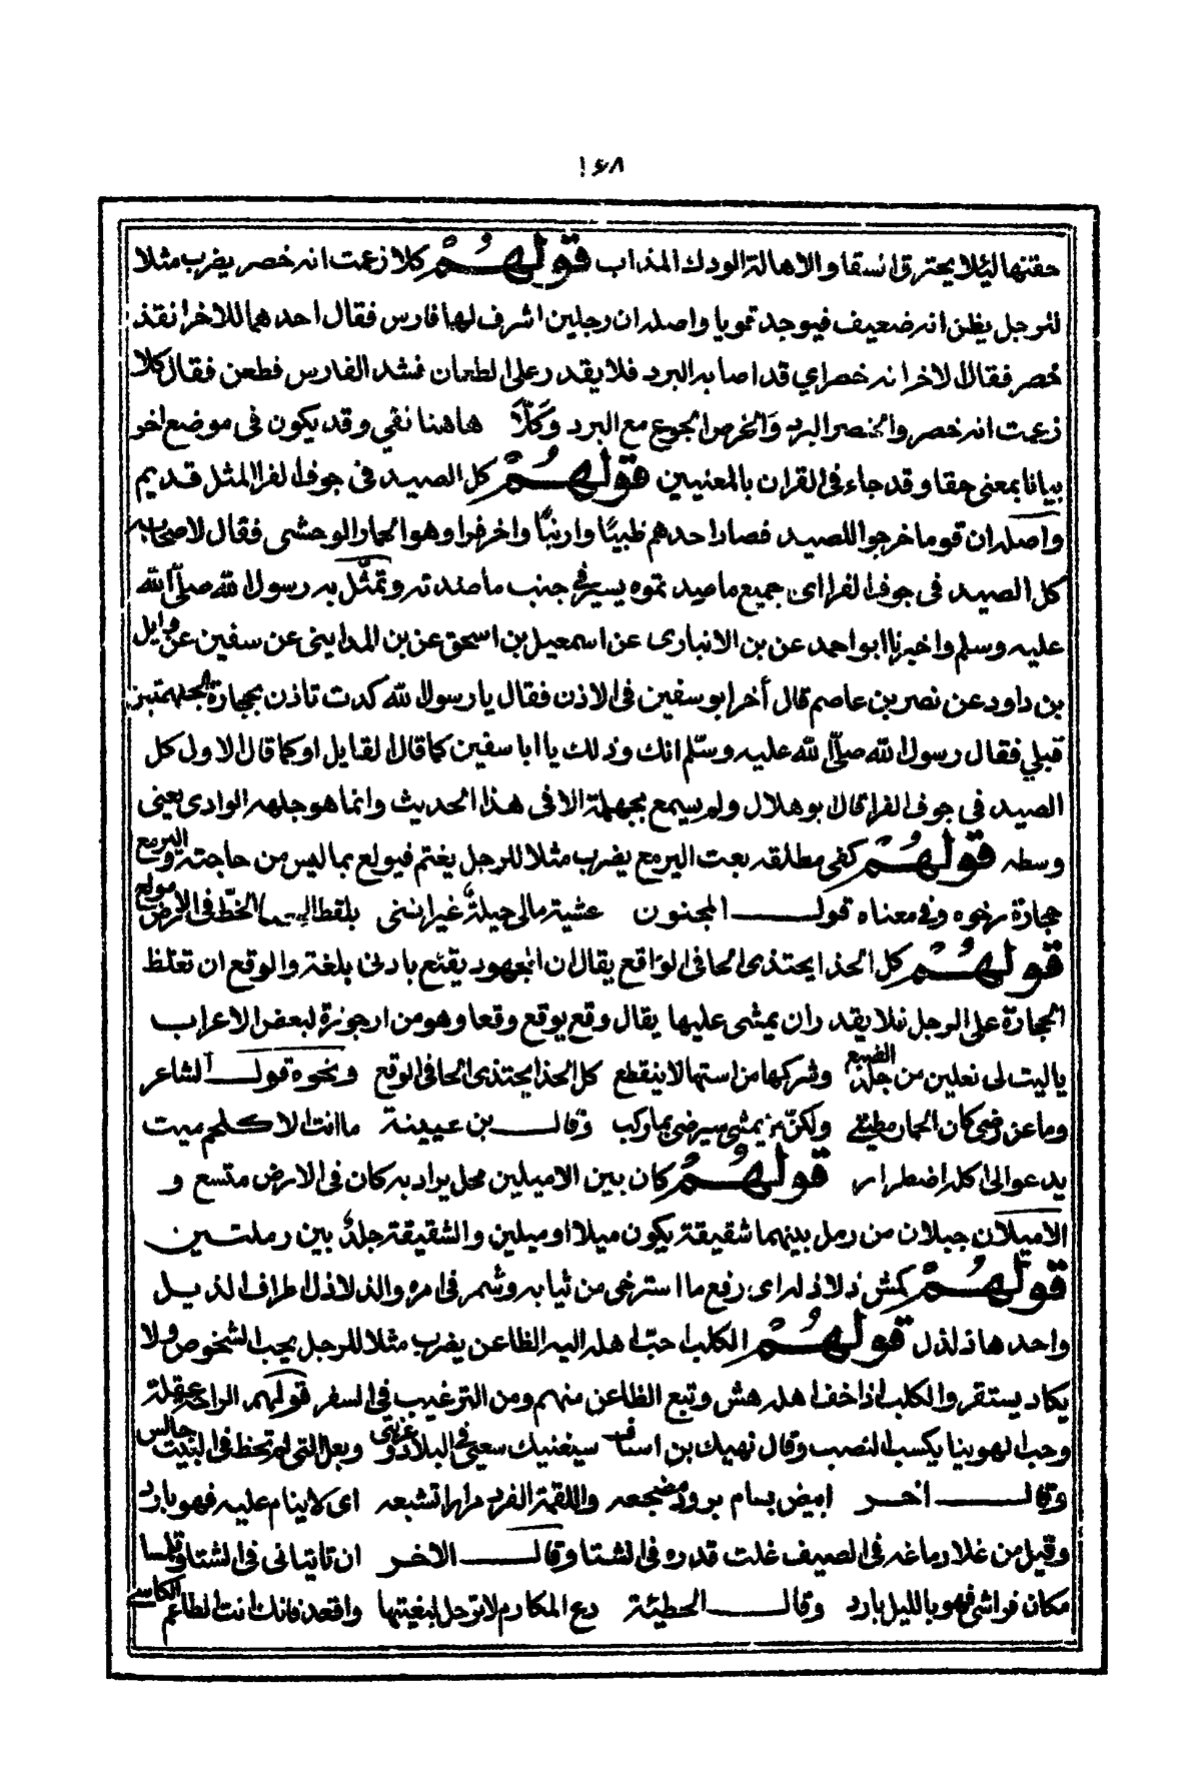 ١٦٨
حقنتها ليئلا يحترق انسقا والاهالة الودك المذاب قولهم كلا زعمت انه خصر يضرب مثلا
للرجل يظن انه ضعيف فيوجد تمويا واصله ان رجلين اشرف لهما فارس فقال احدهما للاخر انقذ
خصر فقال الاخر انه خصر اي قد اصابه البرد فلا يقدر على الطعان فشد الفارس فطعن فقال كلا
زعمت انه خصر والخصر البرد وَالخرص الجوع مع البرد وَكَلّا هاهنا نفي وقد يكون في موضع اخر
بيانا بمعنى حقا وقد جاء في القران بالمعنيين قولهم كل الصيد في جوف الفرا المثل قديم
واصله ان قوما خرجوا للصيد فصاد احدهم ظبيًا وارنبًا واخر فرا وهو الحمار الوحشى فقال لاصحابه
كل الصيد في جوف الفرا اى جميع ما صيد تموه يسير في جنب ما صدته وتمثّل به رسول الله صلّى الله
عليه وسلم واخبرنا ابو احمد عن بن الانبارى عن اسمعيل بن اسحق عن بن المداينى عن سفين عن وايل
بن داود عن نصر بن عاصم قال أخر ابو سفين في الاذن فقال يا رسول الله كدت تاذن بحجارة الجلهمتين
قبلي فقال رسول الله صلّى الله عليه وسلّم انك وذلك يا ابا سفين كما قال القايل او كما قال الاول كل
الصيد في جوف الفرا قال بو هلال ولم يسمع بجهملة الا في هذا الحديث وانما هو جلهه الوادى يعنى
وسطه قولهم كفى مطلقه بعت اليرمع يضرب مثلا للرجل يغتم فيولع بما ليس من حاجته واليرمع
حجارة رخوه وفي معناه قول المجنون عشية مالى حيلة غير اننى بلقط الحصا والخطّ في الارض مولع
قولهم كل الحذا يحتذى الحافى الواقع يقال ان المجهود يقنع بادنى بلغة والوقع ان تغلظ
الحجارة على الرجل فلا يقدر ان يمشى عليها يقال وقع يوقع وقعا وهو من ارجوزة لبعض الاعراب
يا ليت لى نعلين من جلد الضبع وشركها من استها لا ينقطع كل الحذا يحتذى الحافى الوقع ونحوه قول الشاعر
وما عن رضى كان الحمار مطيتى ولكنّ من يمشى سيرضى بما ركب وقال بن عيينة ما انت الا كلحم ميت
يدعو الى اكله اضطرار قولهم كان بين الاميلين محل يراد به كان في الارض متسع و
الاميلان جبلان من رمل بينهما شقيقة يكون ميلا او ميلين والشقيقة جلدٌ بين رملتين
قولهم كمش ذلاذله اى رفع ما استرخى من ثيابه وشمر في امره والذلاذل اطراف الذيل
واحدها ذلذل قولهم الكلب احبّ اهله اليه الظاعن يضرب مثلا للرجل يحب الشخوص ولا
يكاد يستقر والكلب اذا خف اهله هش وتبع الظاعن منهم ومن الترغيب في السفر قولهم الراحة عقلة
وحب الهوينا يكسب النصب وقال نهيك بن اساف سيغنيك سعي في البلاد وغربتى وبعل التى لم تحظ في البيت جالس
وقال اخر ابيض بسام برود مضجعه واللقمة الفرد مرارا تشبعه اى لا ينام عليه فهو بارد
وقيل من غلا دماغه في الصيف غلت قدره في الشتا وقال الاخر ان تاتيانى في الشتا وتلمسا
مكان فراشى فهو بالليل بارد وقال الحطيئة دع المكارم لا ترحل لبغيتها واقعد فانك انت الطاعم الكاسى